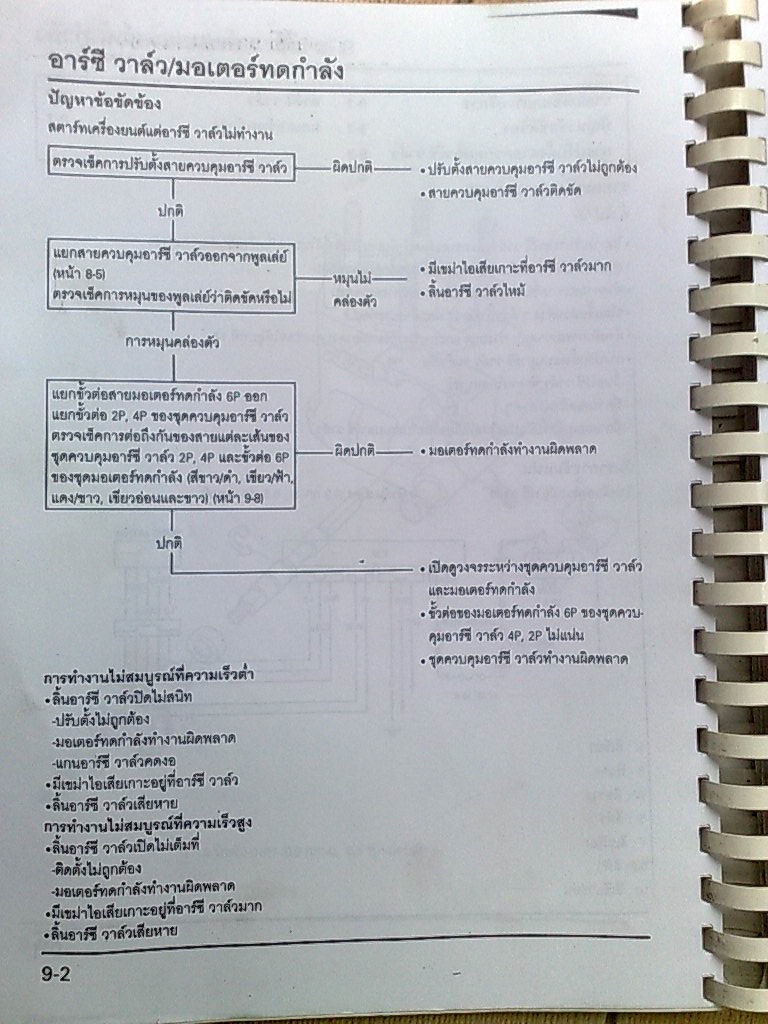 อาร์ซี วาล์ว/มอเตอร์ทดกำลัง
ปัญหาข้อขัดข้อง
สตาร์ทเครื่องยนต์แต่อาร์ซี วาล์วไม่ทำงาน
ตรวจเช็คการปรับตั้งสายควบคุมอาร์ซี วาล์ว
ผิดปกติ
• ปรับตั้งสายควบคุมอาร์ซี วาล์วไม่ถูกต้อง
• สายควบคุมอาร์ซี วาล์วติดขัด
ปกติ
แยกสายควบคุมอาร์ซี วาล์วออกจากพูลเล่ย์
(หน้า 8-5)
ตรวจเช็คการหมุนของพูลเล่ย์ว่าติดขัดหรือไม่
หมุนไม่
คล่องตัว
• มีเขม่าไอเสียเกาะที่อาร์ซี วาล์วมาก
• ลิ้นอาร์ซี วาล์วไหม้
การหมุนคล่องตัว
แยกขั้วต่อสายมอเตอร์ทดกำลัง 6P ออก
แยกขั้วต่อ 2P, 4P ของชุดควบคุมอาร์ซี วาล์ว
ตรวจเช็คการต่อถึงกันของสายแต่ละเส้นของ
ชุดควบคุมอาร์ซี วาล์ว 2P, 4P และขั้วต่อ 6P
ของชุดมอเตอร์ทดกำลัง (สีขาว/ดำ, เขียว/ฟ้า,
แดง/ขาว, เขียวอ่อนและขาว) (หน้า 9-8)
ผิดปกติ
• มอเตอร์ทดกำลังทำงานผิดพลาด
ปกติ
• เปิดดูวงจรระหว่างชุดควบคุมอาร์ซี วาล์ว
และมอเตอร์ทดกำลัง
• ขั้วต่อของมอเตอร์ทดกำลัง 6P ของชุดควบ-
คุมอาร์ซี วาล์ว 4P, 2P ไม่แน่น
• ชุดควบคุมอาร์ซี วาล์วทำงานผิดพลาด
การทำงานไม่สมบูรณ์ที่ความเร็วต่ำ
•ลิ้นอาร์ซี วาล์วปิดไม่สนิท
-ปรับตั้งไม่ถูกต้อง
-มอเตอร์ทดกำลังทำงานผิดพลาด
-แกนอาร์ซี วาล์วคดงอ
•มีเขม่าไอเสียเกาะอยู่ที่อาร์ซี วาล์ว
•ลิ้นอาร์ซี วาล์วเสียหาย
การทำงานไม่สมบูรณ์ที่ความเร็วสูง
•ลิ้นอาร์ซี วาล์วเปิดไม่เต็มที่
-ติดตั้งไม่ถูกต้อง
-มอเตอร์ทดกำลังทำงานผิดพลาด
•มีเขม่าไอเสียเกาะอยู่ที่อาร์ซี วาล์วมาก
•ลิ้นอาร์ซี วาล์วเสียหาย
9-2